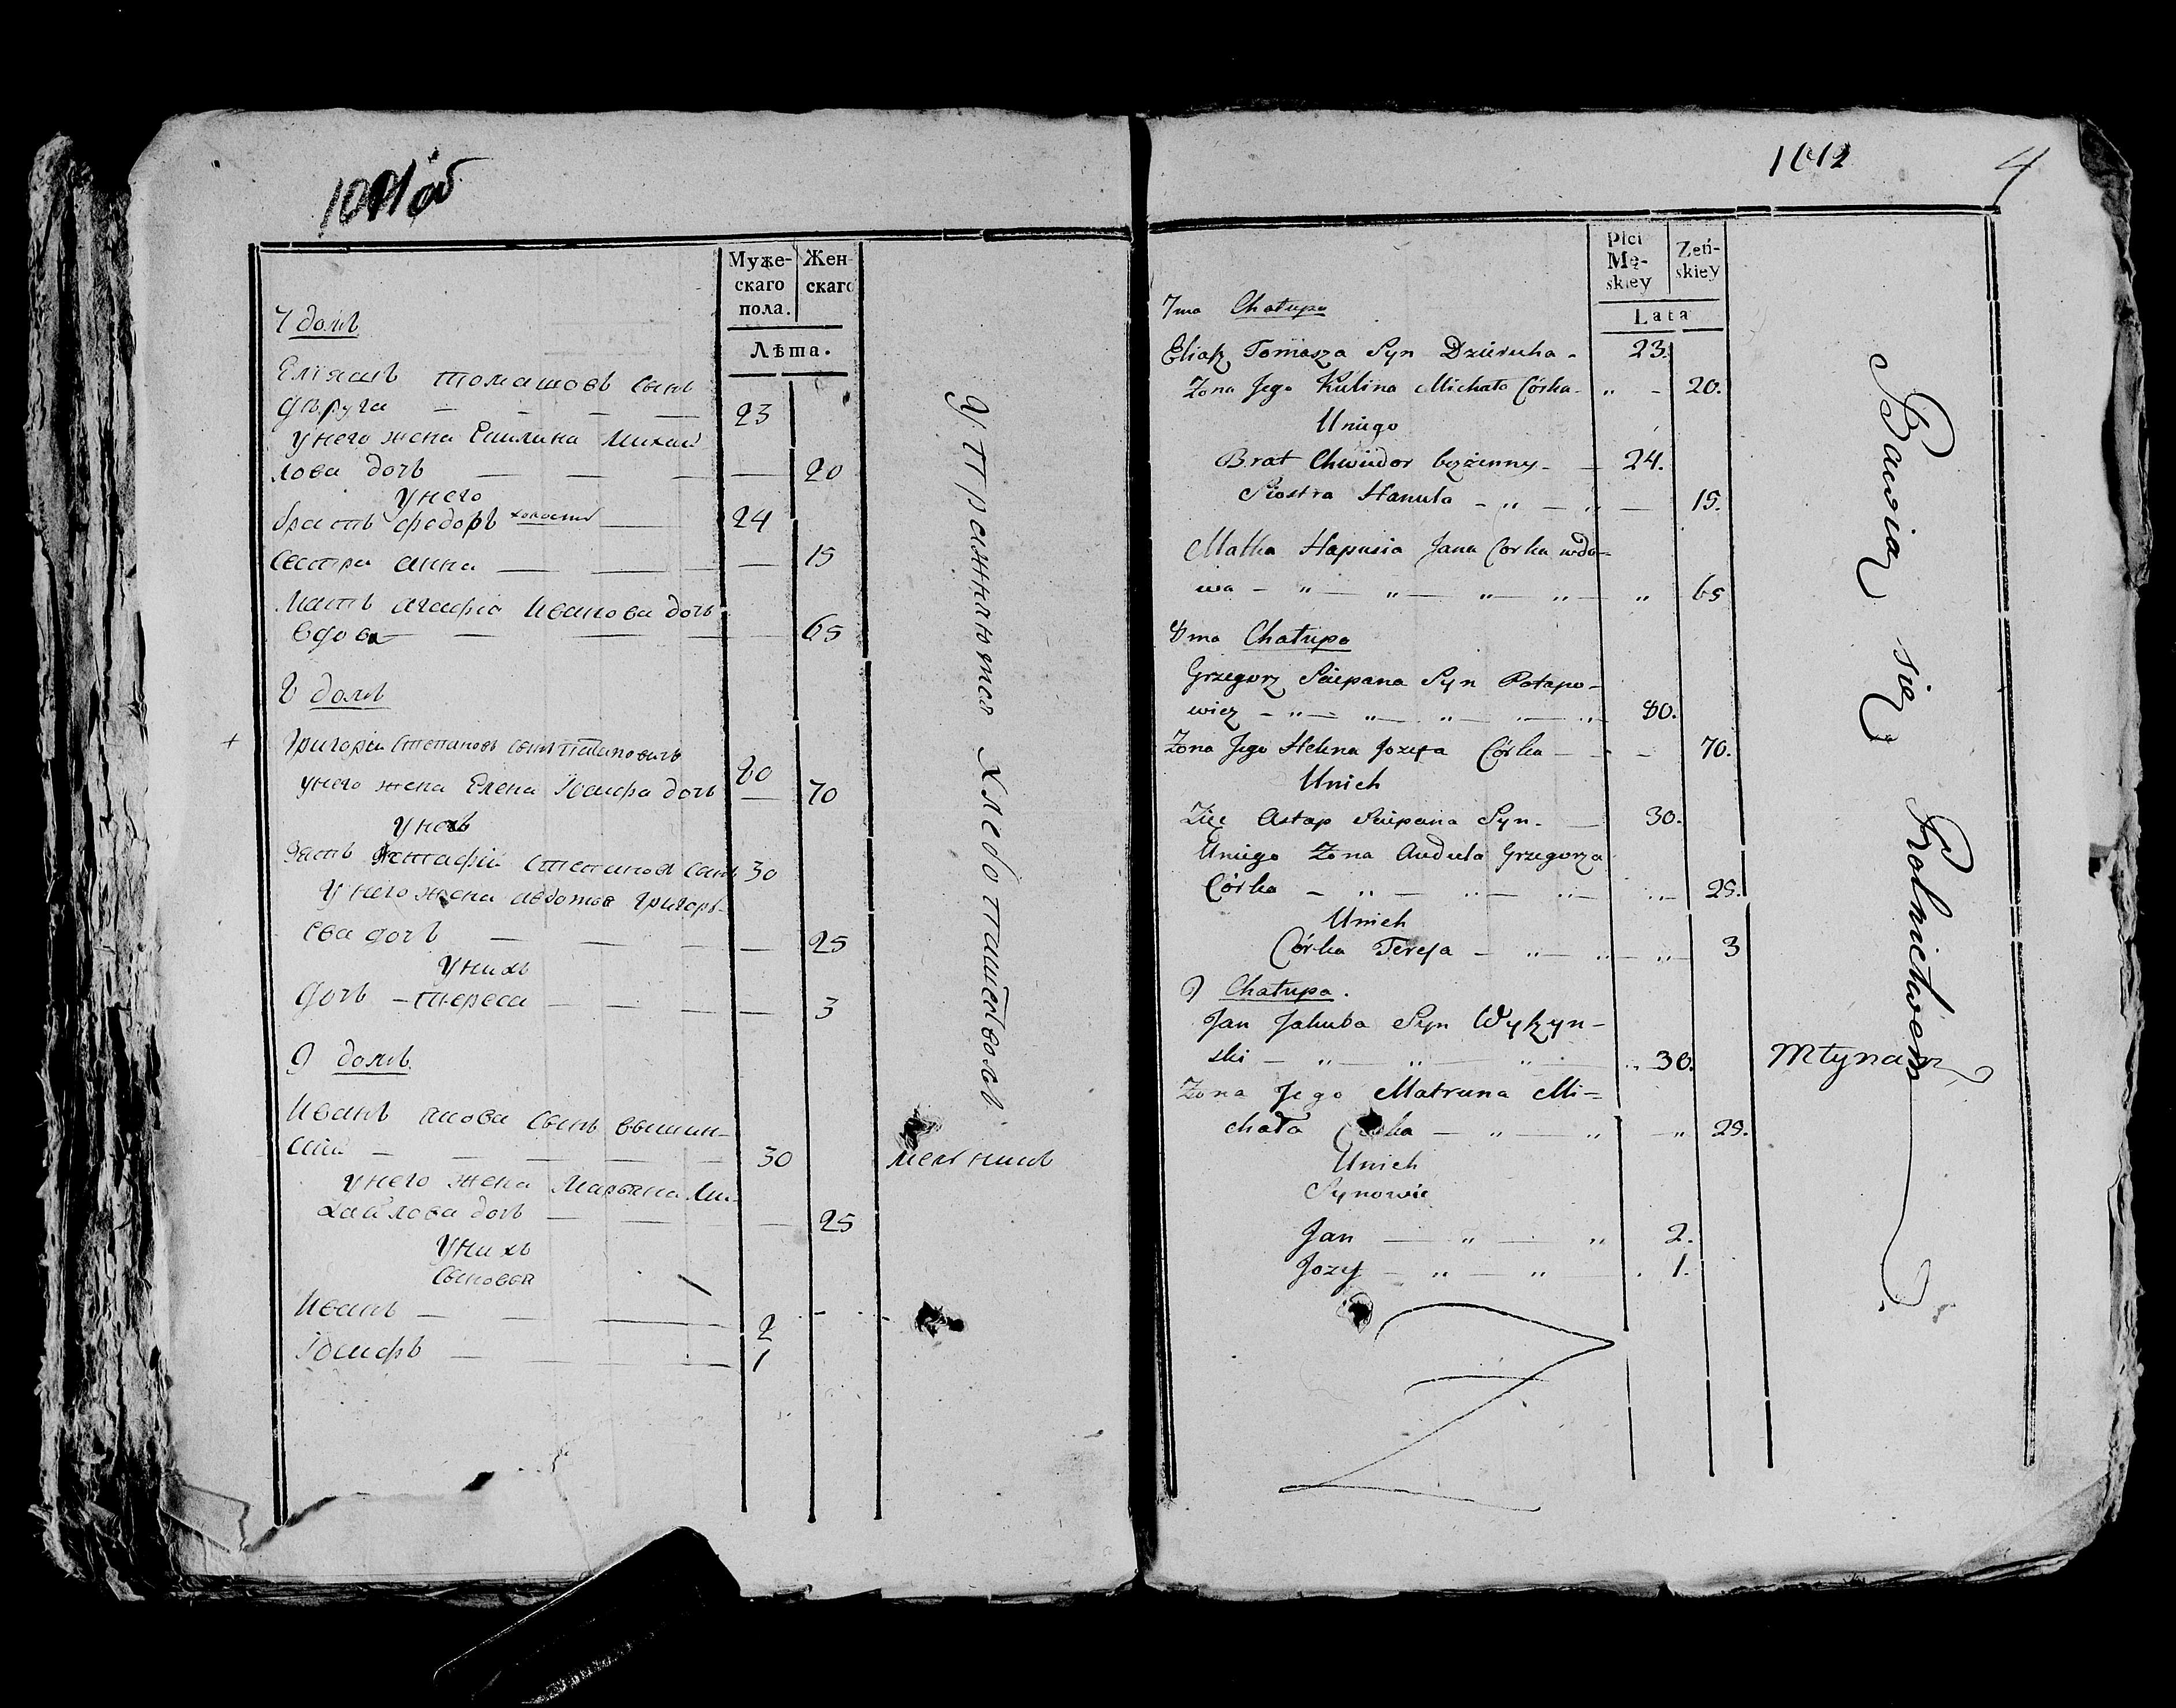 Муже-
скаго
пола.
Жен-
скаго
Лѣта.
7 домъ
Еліяшъ томашовъ сынъ
дѣруга — — — — 23
у него жена Еилина михай
лова дочь — — — — 20
У него
братъ федоръ холостъ — 24
сестра анна — — — 15
мать агафіа иванова дочь
вдова — — — 65
8 домъ
+ Григорій степановъ сынъ патаповичъ 80
у него жена Елена Іосифа дочь — 70
У нихъ
зять астафій степановъ сынъ 30
У него жена авдотья григорь-
ева дочь — — — — 25
У нихъ
дочь — тереса — — — — 3
9 домъ
Иванъ якова сынъ вышин-
скій — — — — — 30 мельникъ
у него жена Марьяна ми-
хайлова дочь — — — 25
У нихъ
сыновья
Иванъ — — — 2
Іосифъ — — — 1
Упражняются хлебопашествомъ
1012
4
Płci
Mę-
skiey
Żeń-
skiey
Lata
7ma Chałupa
Eliasz Tomasza Syn Dzierucha - 23.
Zona Jego Kulina Michała Córka - „ - 20.
Uniego
Brat Chwiedor bezżenny - — 24.
Siostra Hanula - „ — „ — 15.
Matka Hapusia Jana Corka wdo=
wa - „ — „ — „ — „ — „ 65
8ma Chałupa
Grzegorz Sciepana Syn Potapo-
wicz - „ — „ — „ — „ — „ 80.
Zona Jego Helena Jozefa Córka — - - 70.
Unich
Zięc Astap Sciepana Syn. — 30.
Uniego Zona Audula Grzegorza
Córka — „ — „ — „ — „ — 25.
Unich
Córka Teresa — „ — „ — „ — 3
9 Chałupa.
Jan Jakuba Syn Wyszyn-
ski — „ — „ — „ — „ 30. Młynarz
Zona Jego Matruna Mi=
chała Córka — „ — „ — „ 25.
Unich
Synowie
Jan — „ — „ 2.
Jozef — „ — „ — . 1.
Bawią się Rolnictwem